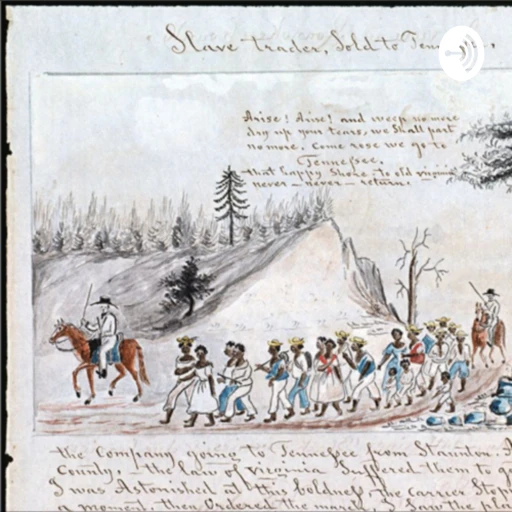 Slave trader, Sold to
Arise! Arise! and weep no more
dry up your tears, we Shall part
no more. Come rose we go to
Tennessee,
that happy Shore. to old virginia
never — never — return.
the Company going to Tennessee from Staunton.
County, the law of Virginia Suffered them to
I was Astonished at this boldness, the Carrier
a moment, then Ordered the march, I Saw the